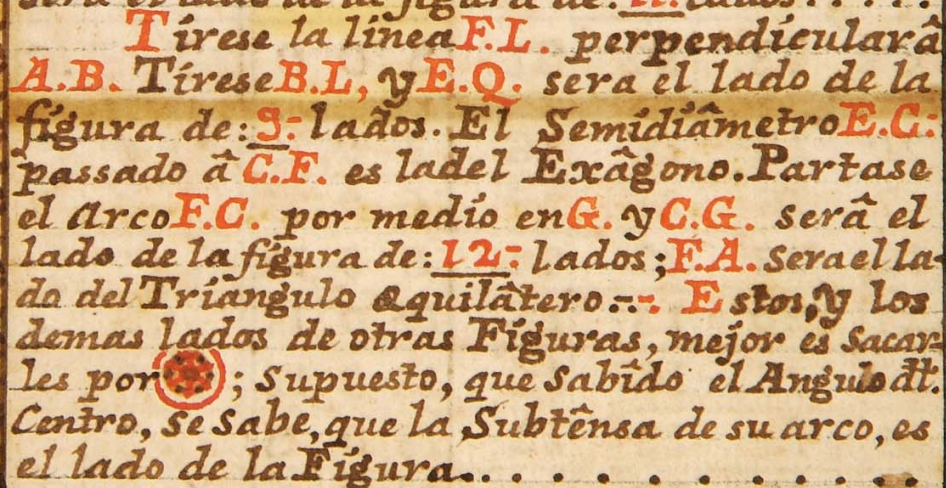 sera el lado de la figura de: 11: lados. . . . . .
Tirese la linea F.L. perpendicular â
A.B. Tirese B.L, y E.Q. sera el lado de la
figura de: 9: lados. El Semidiâmetro E.C:
passado â C.F. es la del Exâgono. Partase
el arco F.C. por medio en G. y C.G. serâ el
lado de la figura de: 12: lados; F.A. sera el la-
do del Triangulo equilâtero.-- Estos, y los
demas lados de otras Figuras, mejor es sacar-
les por ; supuesto, que sabîdo el Angulo dt.
Centro, se sabe, que la Subtênsa de su arco, es
el lado de la Figura. . . . . . . . . . . .